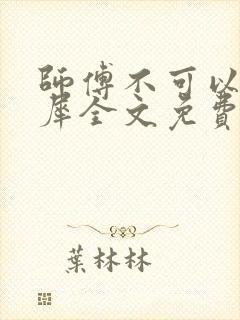 師傅不可以
犀全文免費
葉林林